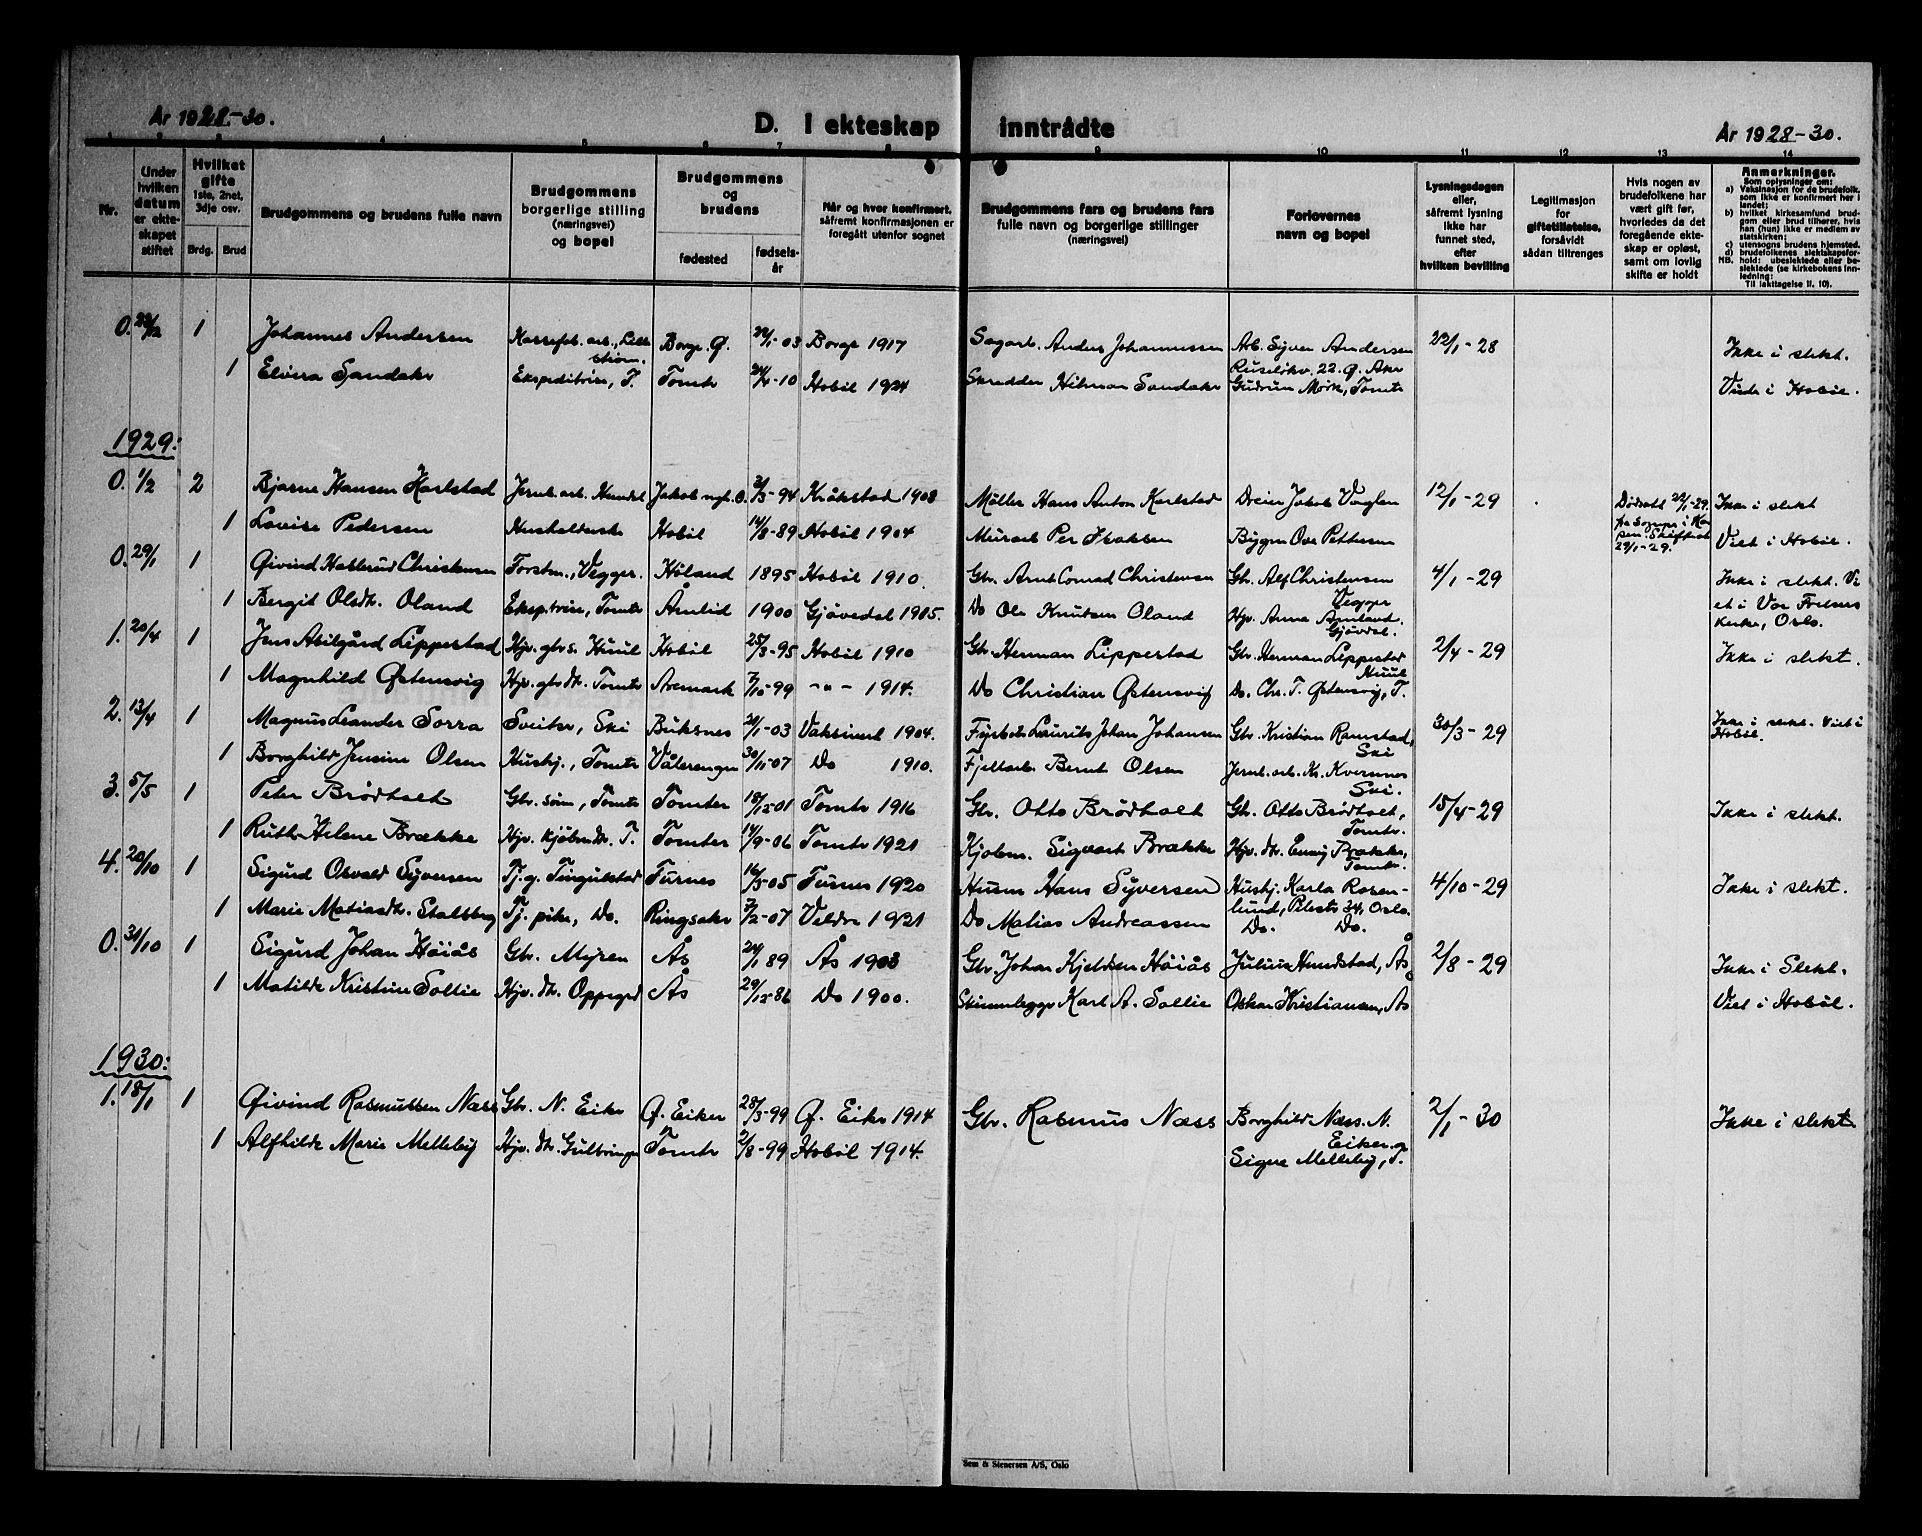 År 1928-30.
D. I ekteskap inntrådte
År 1928-30.
1 2 3 4 5 6 7 8 9 10 11 12 13 14
Nr.
Under hvilken datum er ekteskapet stiftet
Hvilket gifte 1ste, 2net, 3dje osv.
Brdg. Brud
Brudgommens og brudens fulle navn
Brudgommens borgerlige stilling (næringsvei) og bopel
Brudgommens og brudens
fødested
fødselsår
Når og hvor konfirmert, såfremt konfirmasjonen er foregått utenfor sognet
Brudgommens fars og brudens fars fulle navn og borgerlige stillinger (næringsvei)
Forlovernes navn og bopel
Lysningsdagen eller, såfremt lysning ikke har funnet sted, efter hvilken bevilling
Legitimasjon for giftetillatelse, forsåvidt sådan tiltrenges
Hvis nogen av brudefolkene har vært gift før, hvorledes da det foregående ekteskap er opløst, samt om lovlig skifte er holdt
Anmerkninger.
Som oplysninger om:
a) Vaksinasjon for de brudefolk, som ikke er konfirmert her i landet;
b) hvilket kirkesamfund brudgom eller brud tilhører, hvis han (hun) ikke er medlem av statskirken;
c) utensogns brudens hjemsted.
d) brudefolkenes slektskapsforhold: ubeslektede eller beslektede (se kirkebokens innledning:
NB. Til iakttagelse II, 10).
0. 1 Johannes Andersen Borge. Ø. 03 Borge 1917 Sagarb. Anders Johannessen Arb. Syver Andersen 22/1-28 Ikke i slekt.
Ruselökv. 22. Ø. Aker
1 Elvira Sandaker Ekspeditrise, T. Tomter 10 Hobøl 1924 Skredder Hilman Sandaker Gudrun Mørk, Tomter Viet i Hobøl.
1929:
0. 1/2 2 Bjarne Hansen Karlstad Jernb.arb. 94 Kråkstad 1908 Møller Hans Anton Karlstad Dreier Jakob 12/1-29 Ikke i slekt
1 Lovise Pedersen Husholderske Hobøl 14/8-89 Hobøl 1904 Murarb. Per Bygm. Ove Pettersen 29/1-29. Viet i Hobøl.
0. 29/1 1 Øivind Christensen Forstm., Vegger. Høland 1895 Hobøl 1910. Gbr. Arnt Conrad Christensen Gbr. Alf Christensen 4/1-29 Ikke i slekt. Vi
Vegger
1 Bergit Olsdtr. Øland Eksp.trise, Tomter Åmlid 1900 Gjøvedal 1915. Do Ole Knutsen Oland Hjv. Anna Åmland. et i Vor Frelsers
Gjøvdal. Kirke, Oslo.
1. 20/4 1 Jens Abilgård Lippestad Hjv. gbrs. Huul Hobøl 25/3-95 Hobøl 1910 Gbr. Herman Lippestad Gbr. Herman Lippestad 2/4-29 Ikke i slekt.
Huul
1 Magnhild Østensvig Hjv. gbrdtr. Tomter Aremark 7/10-99 -"- 1914. Do Christian Østensvig Do. Chr. T. Østensvig, T.
2. 13/4 1 Magnus Leander Sorra Sveiser, Ski Buksnes 03 Vaksinert 1904. Laurits Johan Johansen Gbr. Kristian Ramstad, 30/3-29 Ikke i slekt. Viet i
Ski Hobøl.
1 Borghild Jensine Olsen Hushj., Tomter Vålerengen 30/11-07 Do 1910. Fjellarb. Bernt Olsen Jernb.arb. Kr. Kvernnes
Ski.
3. 5/5 1 Peter Brødholt Gbr. sønn, Tomter Tomter 18/12-01 Tomter 1916 Gbr. Otto Brødholt Gbr. Otto Brødholt, 15/4-29 Ikke i slekt.
Tomter.
1 Ruth Helene Brække Hjv. kjøbm.dtr. T. Tomter 14/9-06 Tomter 1921 Kjøbm. Sigvart Brække Hjv. dtr. Brække,
Tomter.
4. 20/10 1 Sigurd Osvald Syversen Tj.g. Tingulstad Furnes 16/3-05 Furnes 1920 Husm. Hans Syversen Hushj. Karla Rosen- 4/10-29 Ikke i slekt.
lund, Pilestr 34, Oslo.
1 Marie Matiasdtr. Stalsberg Tj. pike, Do. Ringsaker 7/2-07 Veldre 1921 Do Matias Andreassen Do. Do.
0. 31/10 1 Sigurd Johan Høiås Gbr. Myren Ås 24/1 89 Ås 1903 Gbr. Johan Kjeldsen Høiås Julius Hundstad, Ås 2/8-29 Ikke i Slekt.
1 Matilde Kristine Sollie Hjv. dtr. Oppegård Ås 29/12-86 Do 1900. Skinnlegger Karl A. Sollie Oskar Kristiansen, Ås Viet i Hobøl.
1930:
1. 18/1 1 Øivind Rasmussen Næss Gbr. N. Eiker Ø. Eiker 28/3-99 Ø. Eiker 1914 Gbr. Rasmus Næss Borghild Næss. N. 2/1-30 Ikke i slekt
Eiker og
1 Alfhilde Marie Melleby Hjv. dtr. Gulbringe Tomter 2/8-99 Hobøl 1914. Signe Melleby, T.
Sem & Stenersen A/S, Oslo